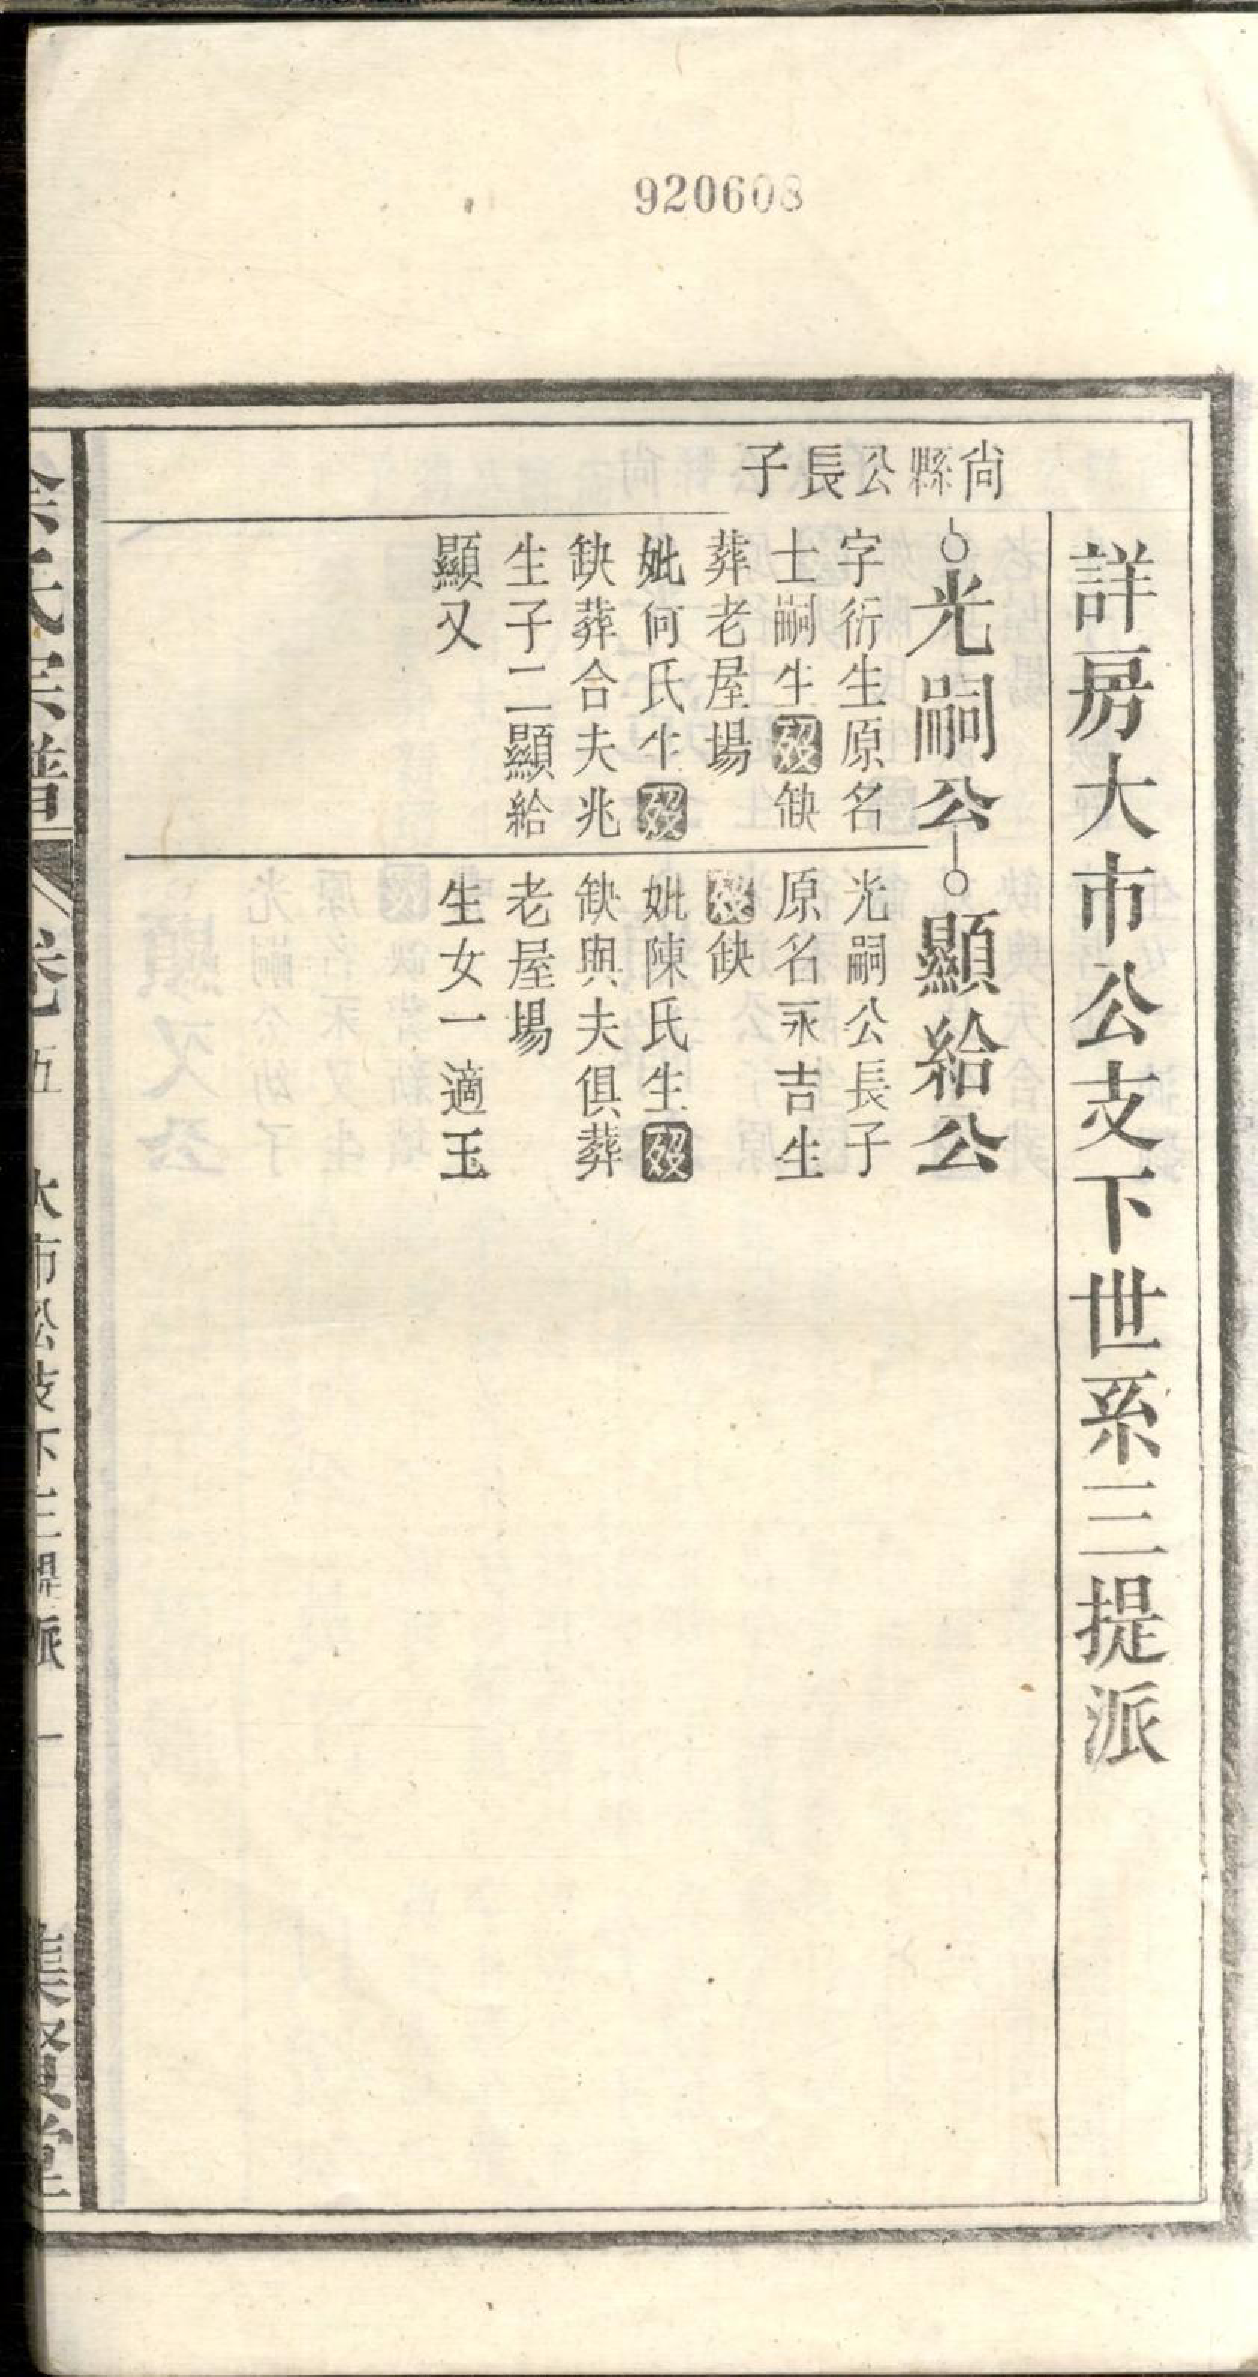 920608
詳房大市公支下世系三提派
尙縣公長子
光嗣公
字衍生原名
士嗣生歿缺
葬老屋場
妣何氏生歿
缺葬合夫兆
生子二顯給
顯又
顯給公
光嗣公長子
原名永吉生
歿缺
妣陳氏生歿
缺與夫俱葬
老屋場
生女一適玉
氏宗譜 卷五 大市公支下三提派 一 集賢堂